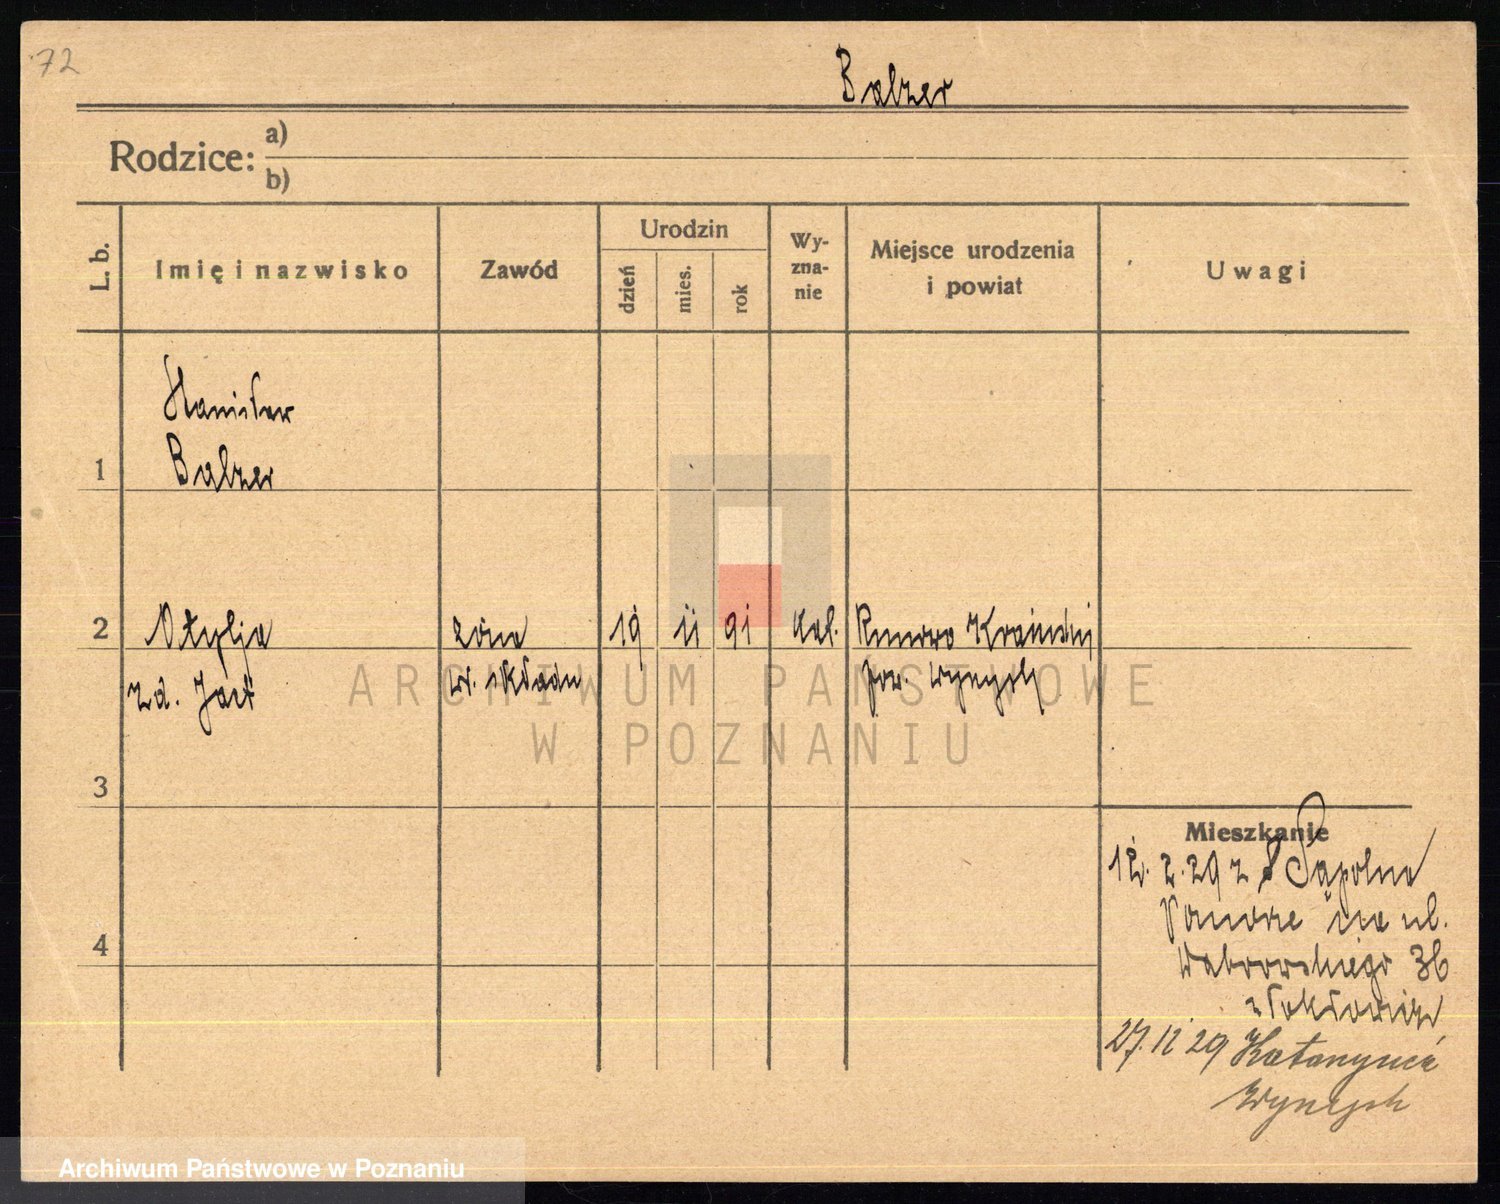 72
Balzer
Rodzice: a)
b)
L. b.
Imię i nazwisko
Zawód
Urodzin
dzień
mies.
rok
Wy-
zna-
nie
Miejsce urodzenia
i powiat
Uwagi
Stanisław
1 Balzer
2 Otylja żona 19 11 91 kat. Runowo Kraińskij
zd. Jact wł. składu pow. Wyrzysk
3
4
Mieszkanie
12. 2. 29 z Sępolna
Pomorze na ul.
Dąbrowskiego 36
27. 12 29
Wyrzysk
ARCHIWUM PAŃSTWOWE
W POZNANIU
Archiwum Państwowe w Poznaniu